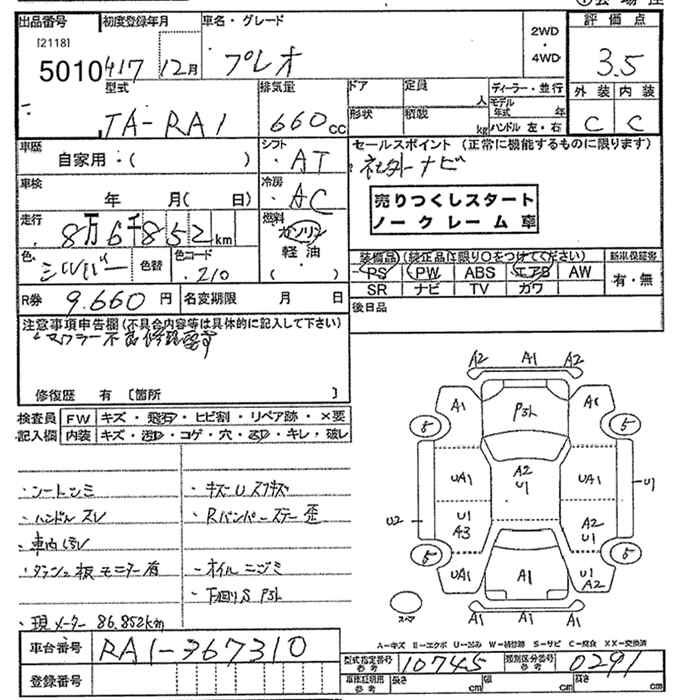 出品番号 初度登録年月 車名・グレード 評価点
[2118]
5010 417 12月 プレオ 2WD・4WD 3.5
型式 排気量 ドア 定員 人 ディーラー・並行 外装 内装
TA-RA1 660cc 形状 積載 kg モデル年式 年 ハンドル 左・右 C C
車歴 シフト セールスポイント (正常に機能するものに限ります)
自家用・( ) AT ・社外ナビ
車検 冷房 売りつくしスタート
年 月(日) AC ノークレーム車
走行 燃料
8万6千852km ガソリン
軽油
( )
色 シルバー 色替 色コード 210
装備品 (純正品に限り○をつけてください) 新車保証書
PS PW ABS エアB AW 有・無
SR ナビ TV カワ
R券 9.660円 名変期限 月 日 後日品
注意事項申告欄(不具合内容等は具体的に記入して下さい)
マフラー不良修理要す
修復歴 有 〔箇所 〕
検査員 FW キズ・飛石・ヒビ割・リペア跡・×要
記入欄 内装 キズ・汚れ・コゲ・穴・スレ・キレ・破レ
・シートシミ ・キズUスリキズ
・ハンドルスレ ・Rバンパーステー歪
・車内汚レ
・ダッシュ板モニター有 ・オイルニゴミ
・下回りS P3L
・現メーター 86,852km
A2 A1 A2
A1 P3L A1
5 5
UA1 A2 U1 UA1 U1
U2 U1 A3 A2 U1
5 5
UA1 A1 U1 A2
A1 A1 A1
スペア
A-キズ E-エクボ U-凹み W-補修跡 S-サビ C-腐食 XX-交換済
車台番号 RA1-367310
型式指定番号 参考 10745 類別区分番号 参考 0291
登録番号 車庫証明用 参考 長さ cm 幅 cm 高さ cm